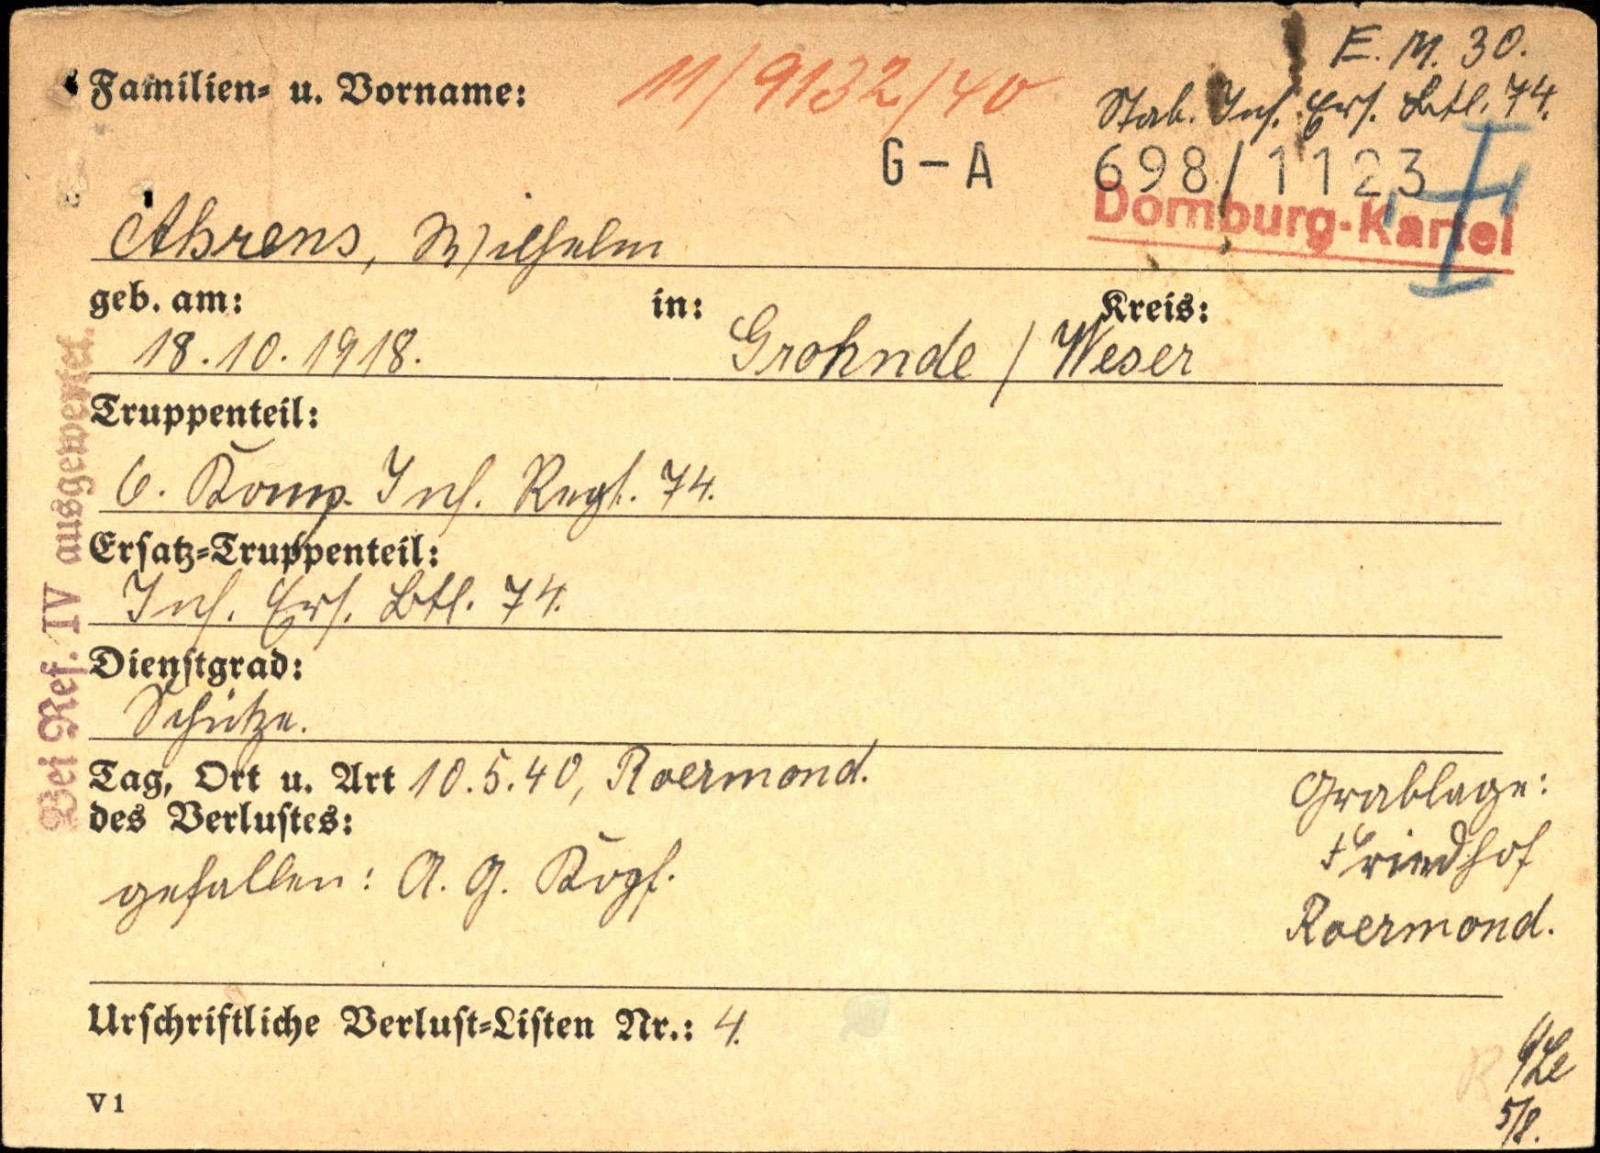 E. M. 30.
Familien- u. Vorname:
11/9132/40
Stab. Inf. Ers. Btl. 74.
G-A 698/1123
Domburg-Kartei
Ahrens, Wilhelm
geb. am: in: Kreis:
18.10.1918. Grohnde / Weser
Truppenteil:
6. Komp. Inf. Regt. 74.
Ersatz-Truppenteil:
Inf. Ers. Btl. 74.
Dienstgrad:
Schütze.
Tag, Ort u. Art 10.5.40, Roermond.
des Verlustes:
gefallen: A. G. Kopf.
Grablage:
Friedhof
Roermond.
Urschriftliche Verlust-Listen Nr.: 4.
V 1
R
5/8.
Bei Ref. IV ausgewertet.